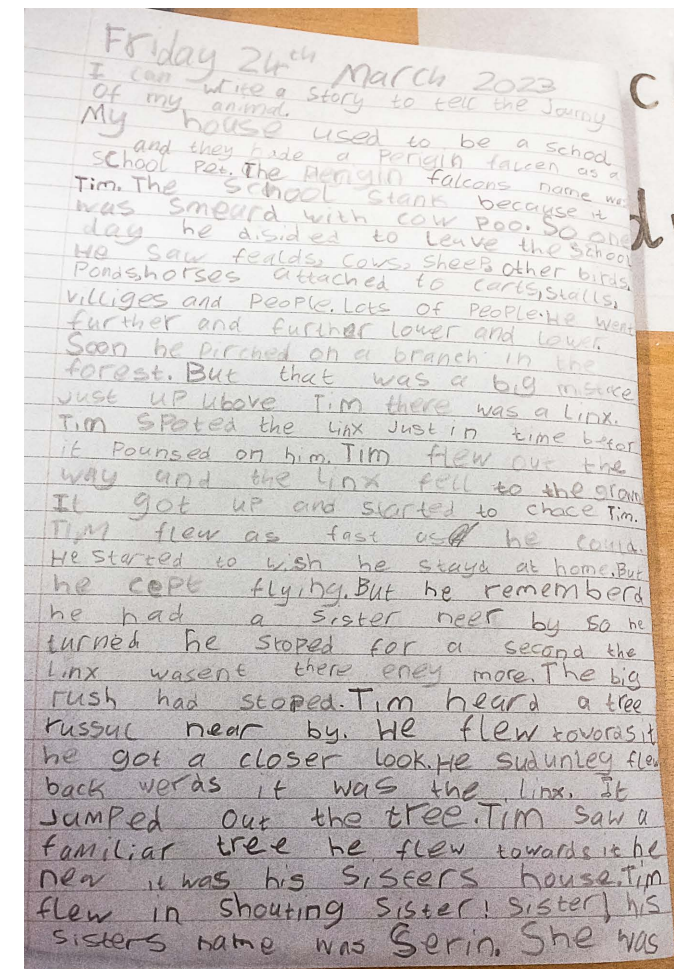 Friday 24th March 2023
I can write a story to tell the Journy
of my animal.
My house used to be a school
and they hade a Perigin falcen as a
school Pet. The Perigin falcons name was
Tim. The School Stank because it
was Smeard with cow Poo. So one
day he disided to Leave the School
He Saw fealds, Cows, sheep, other birds,
Ponds, horses attached to carts, stalls,
villiges and People. Lots of People. He went
further and further lower and lower.
Soon he pirched on a branch in the
forest. But that was a big mistace
Just up ubove Tim there was a Linx.
Tim Spoted the Linx Just in time befor
it Pounsed on him. Tim flew out the
way and the Linx fell to the groun
It got up and started to chace Tim.
Tim flew as fast as he could.
He started to wish he stayd at home. But
he cept flying. But he rememberd
he had a Sister neer by so he
turned he Stoped for a second the
Linx wasent there eney more. The big
rush had stoped. Tim heard a tree
russuc near by. He flew towords it
he got a closer look. He sudunley flew
back werds it was the Linx. It
Jumped out the tree. Tim Saw a
familiar tree he flew towards it he
new it was his Sisters house. Tim
flew in Shouting Sister! Sister! his
Sisters name was Serin. She was
C
d